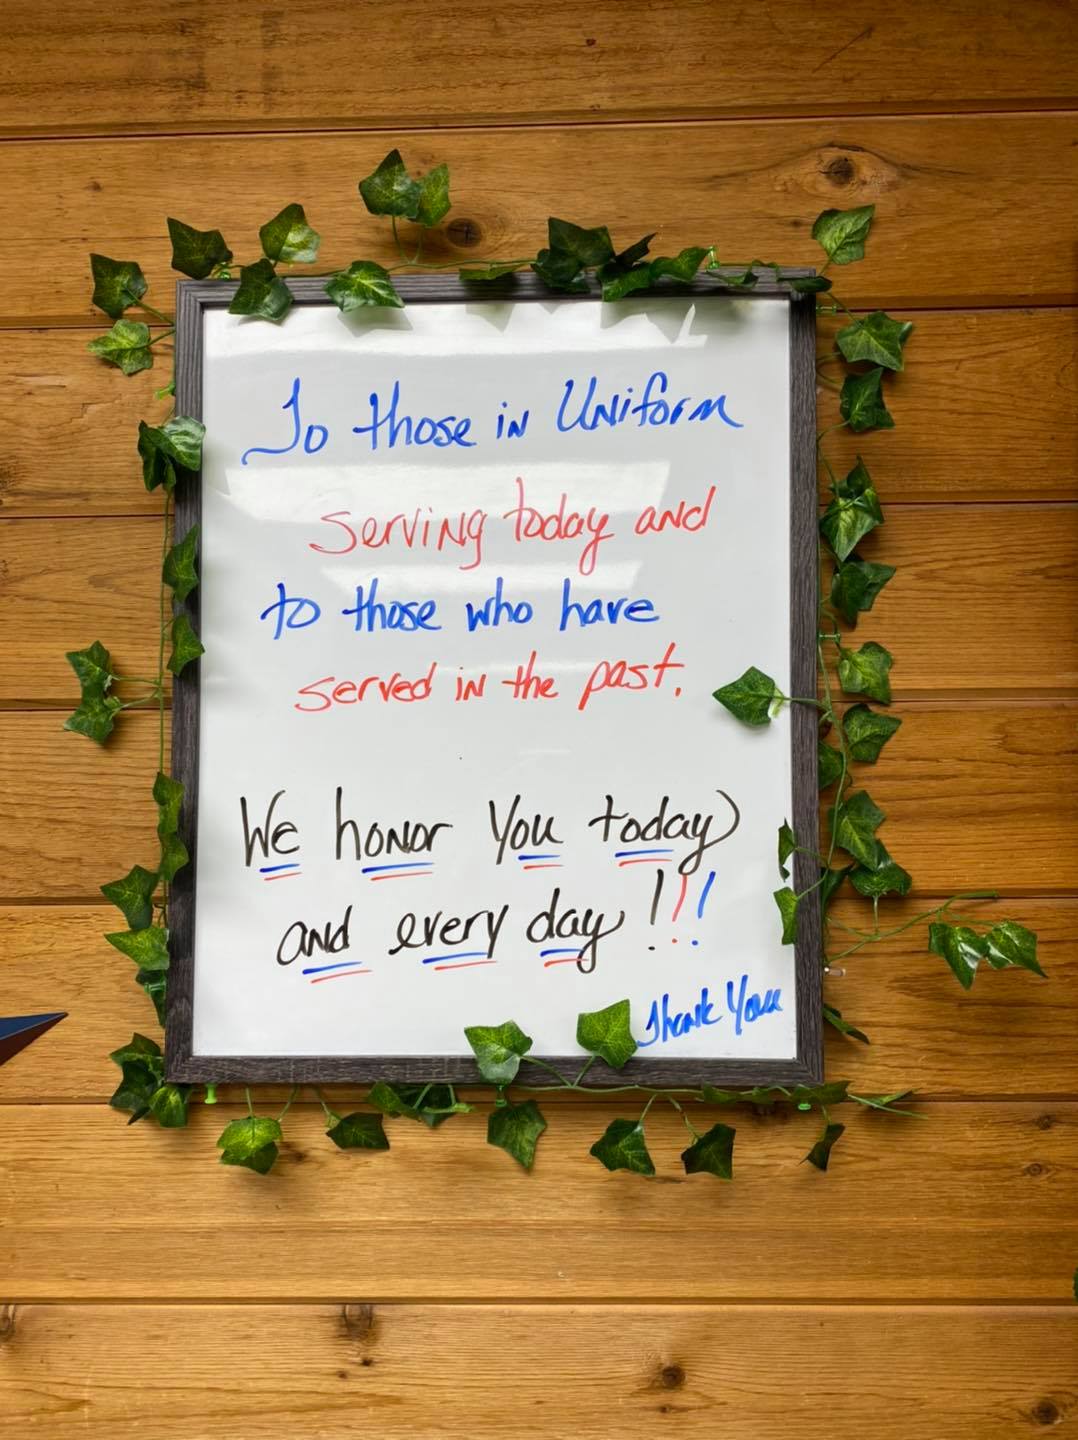 To those in Uniform
serving today and
to those who have
served in the past.
We honor you today
and every day !!!
Thank You